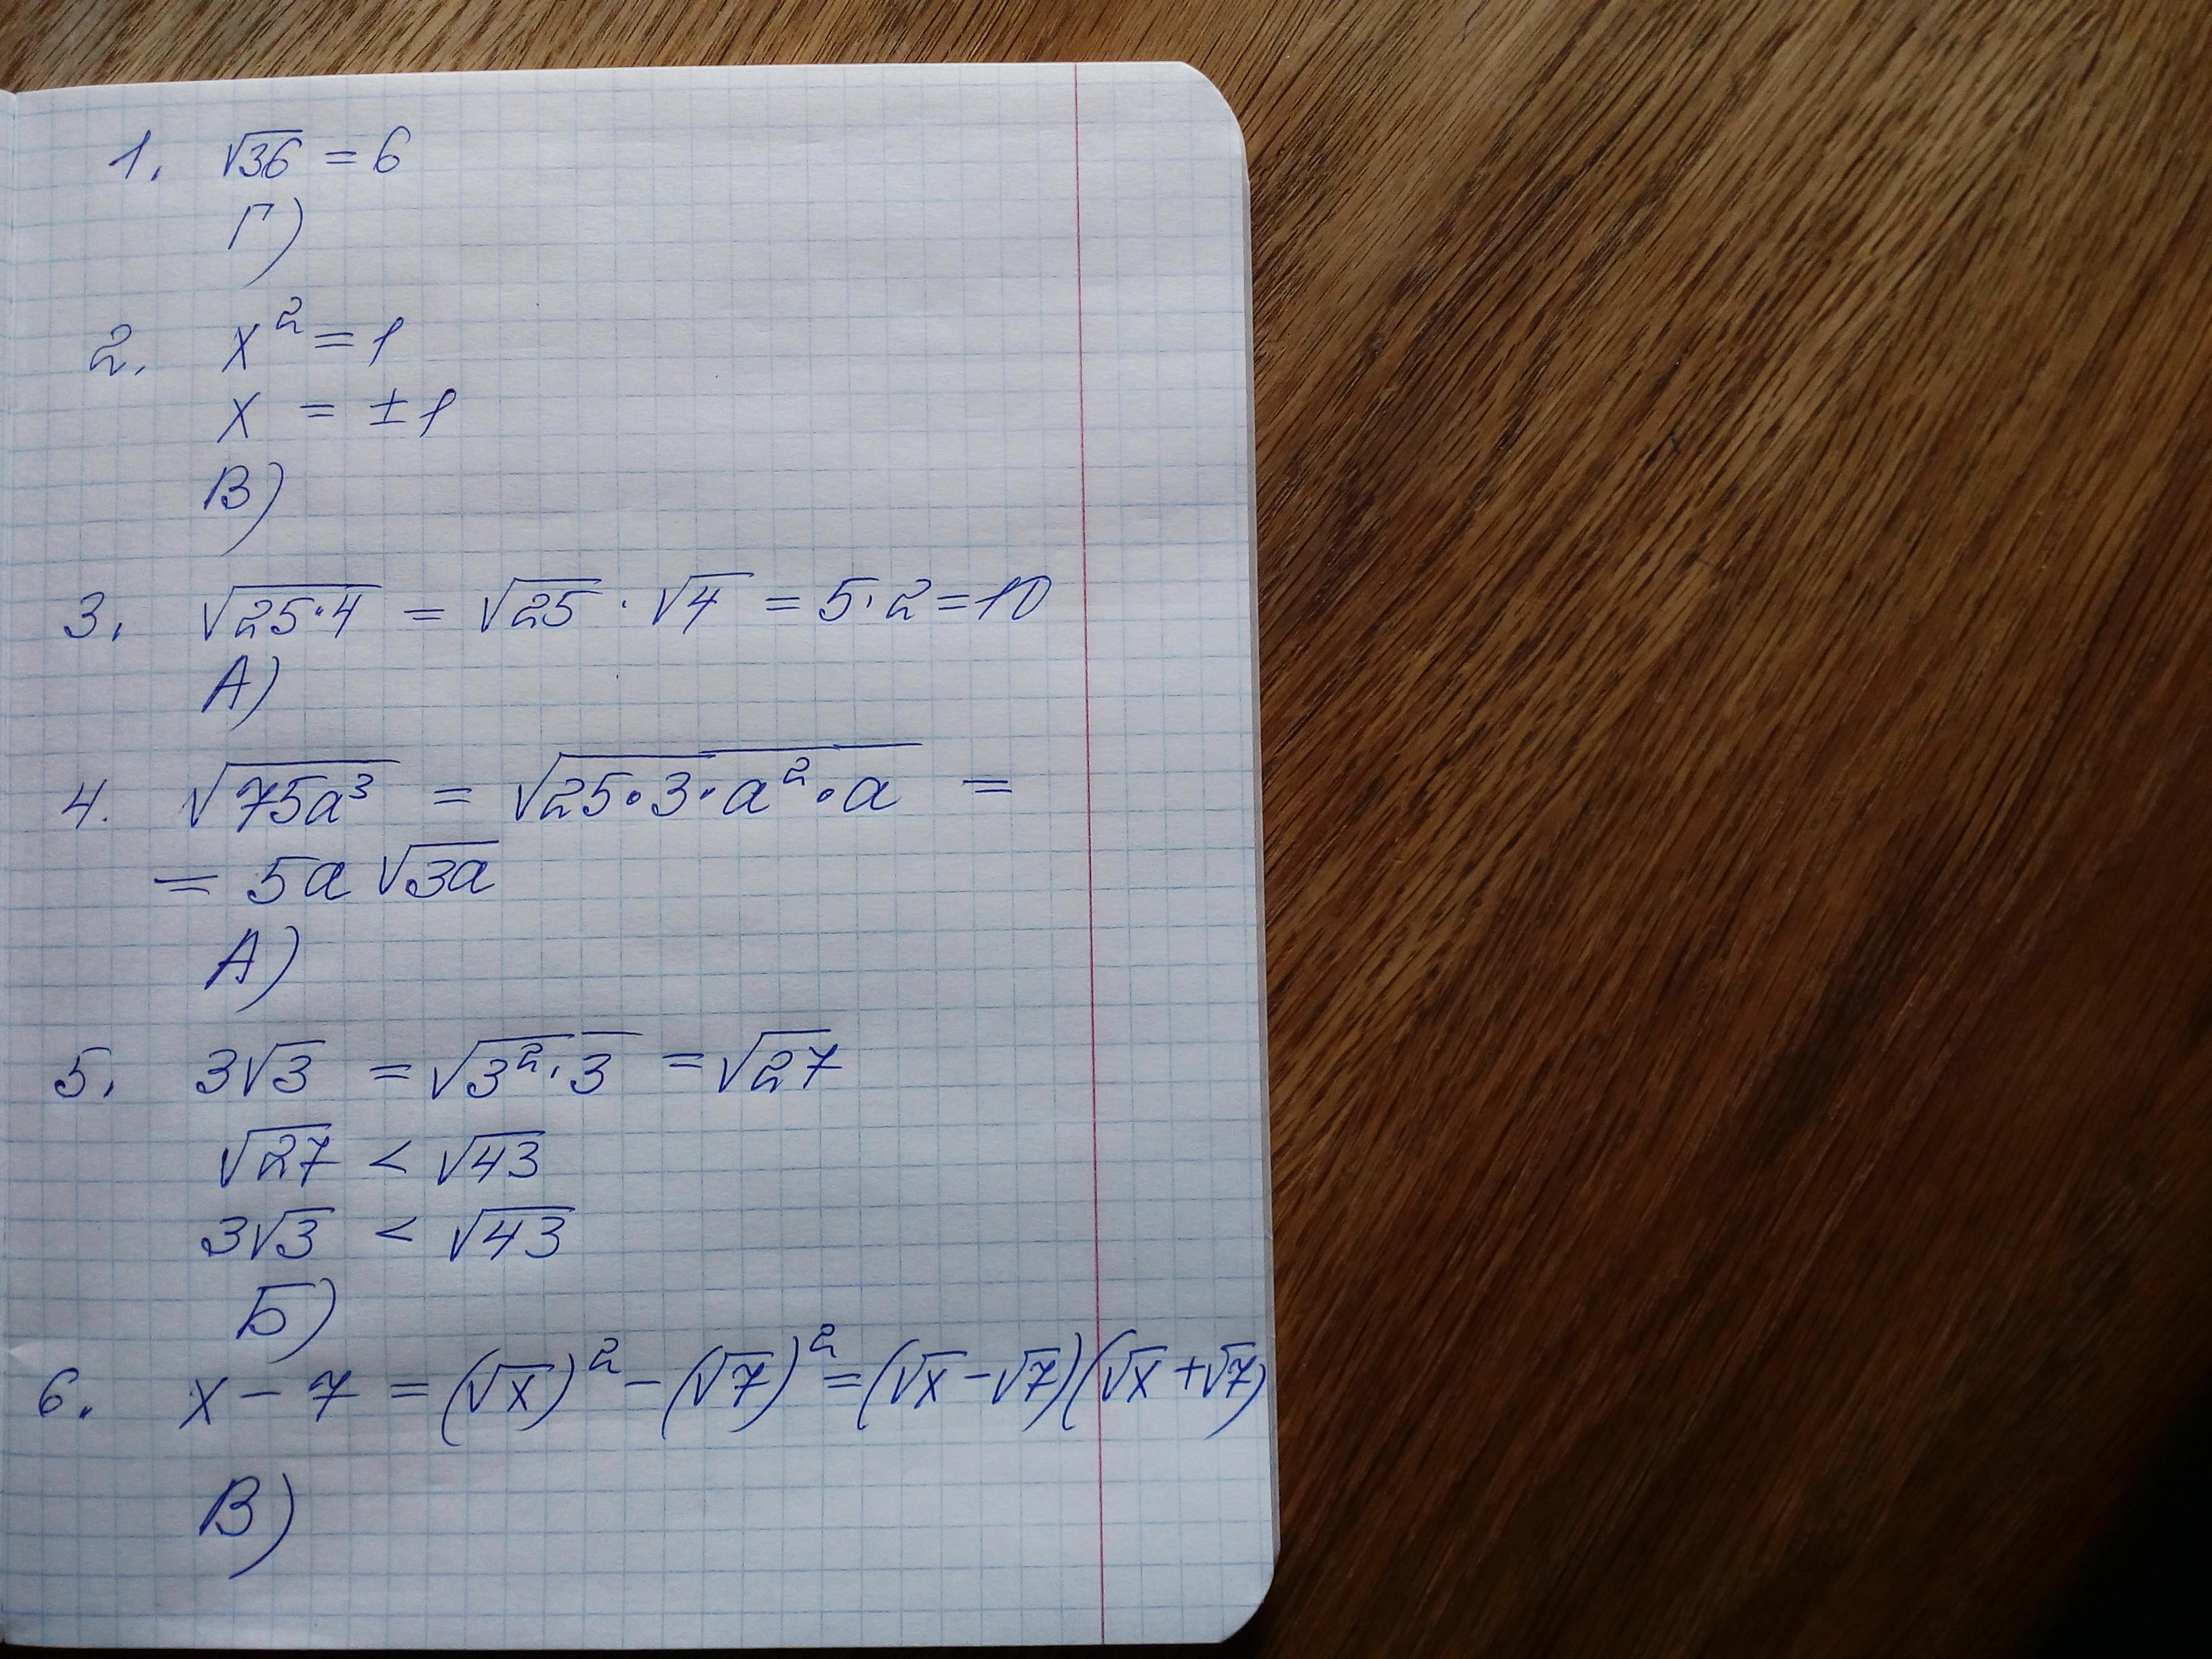 1. √36 = 6
Г)
2. x² = 1
x = ±1
В)
3. √25·4 = √25 · √4 = 5·2=10
А)
4. √75a³ = √25·3·a²·a =
= 5a √3a
А)
5. 3√3 = √3²·3 = √27
√27 < √43
3√3 < √43
Б)
6. x – 7 = (√x)² – (√7)² = (√x – √7)(√x + √7)
В)